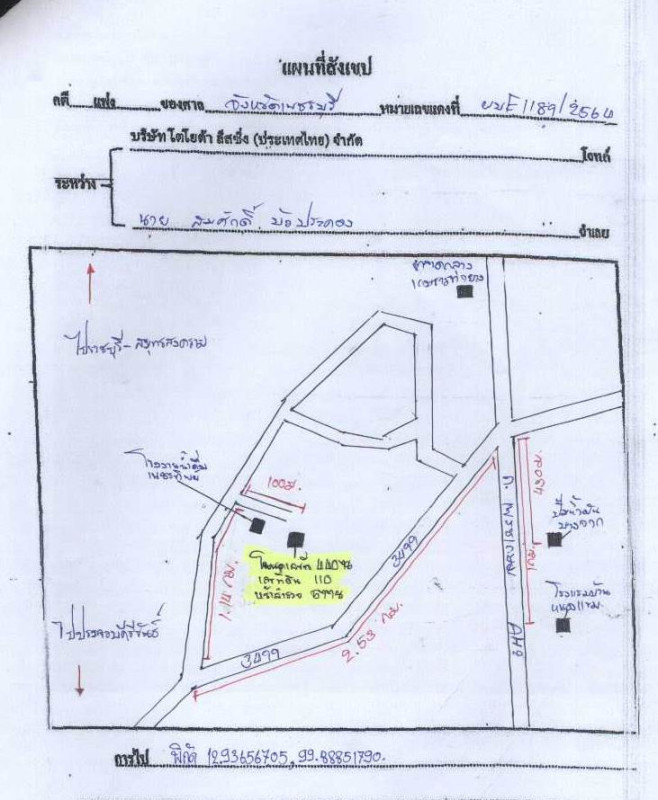 แผนที่สังเขป
คดี แพ่ง ของศาล จังหวัดเพชรบุรี หมายเลขแดงที่ ผบE1189/2564
บริษัท โตโยต้า ลีสซิ่ง (ประเทศไทย) จำกัด โจทก์
ระหว่าง
นาย สมศักดิ์ บัวประคอง จำเลย
ตลาดกลาง
ไปราชบุรี-สมุทรสงคราม
โรงงานน้ำดื่ม
100ม.
430ม.
ถ. เพชรเกษม
ปั๊มน้ำมัน
บางจาก
3499
1กม.
โฉนดเลขที่
เลขที่ดิน 110
หน้าสำรวจ
โรงแรมบ้าน
ไปประจวบคีรีขันธ์
AH2
3499
2.53 กม.
การไป พิกัด 12.93656705, 99.88851790.